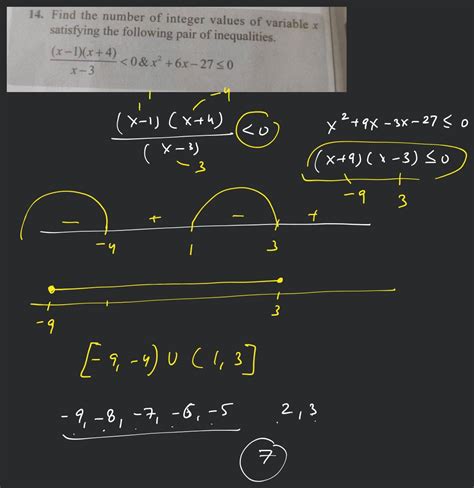 14. Find the number of integer values of variable x
satisfying the following pair of inequalities.
(x−1)(x+4)/x−3 <0 & x² +6x−27≤0
1 -4
(x-1) (x+4)/(x-3) <0
3
x²+9x-3x-27 ≤ 0
(x+9)(x-3) ≤0
-9 3
- + - +
-4 1 3
-9 3
[-9,-4) ∪ (1,3]
-9,-8,-7,-6,-5 2,3
7